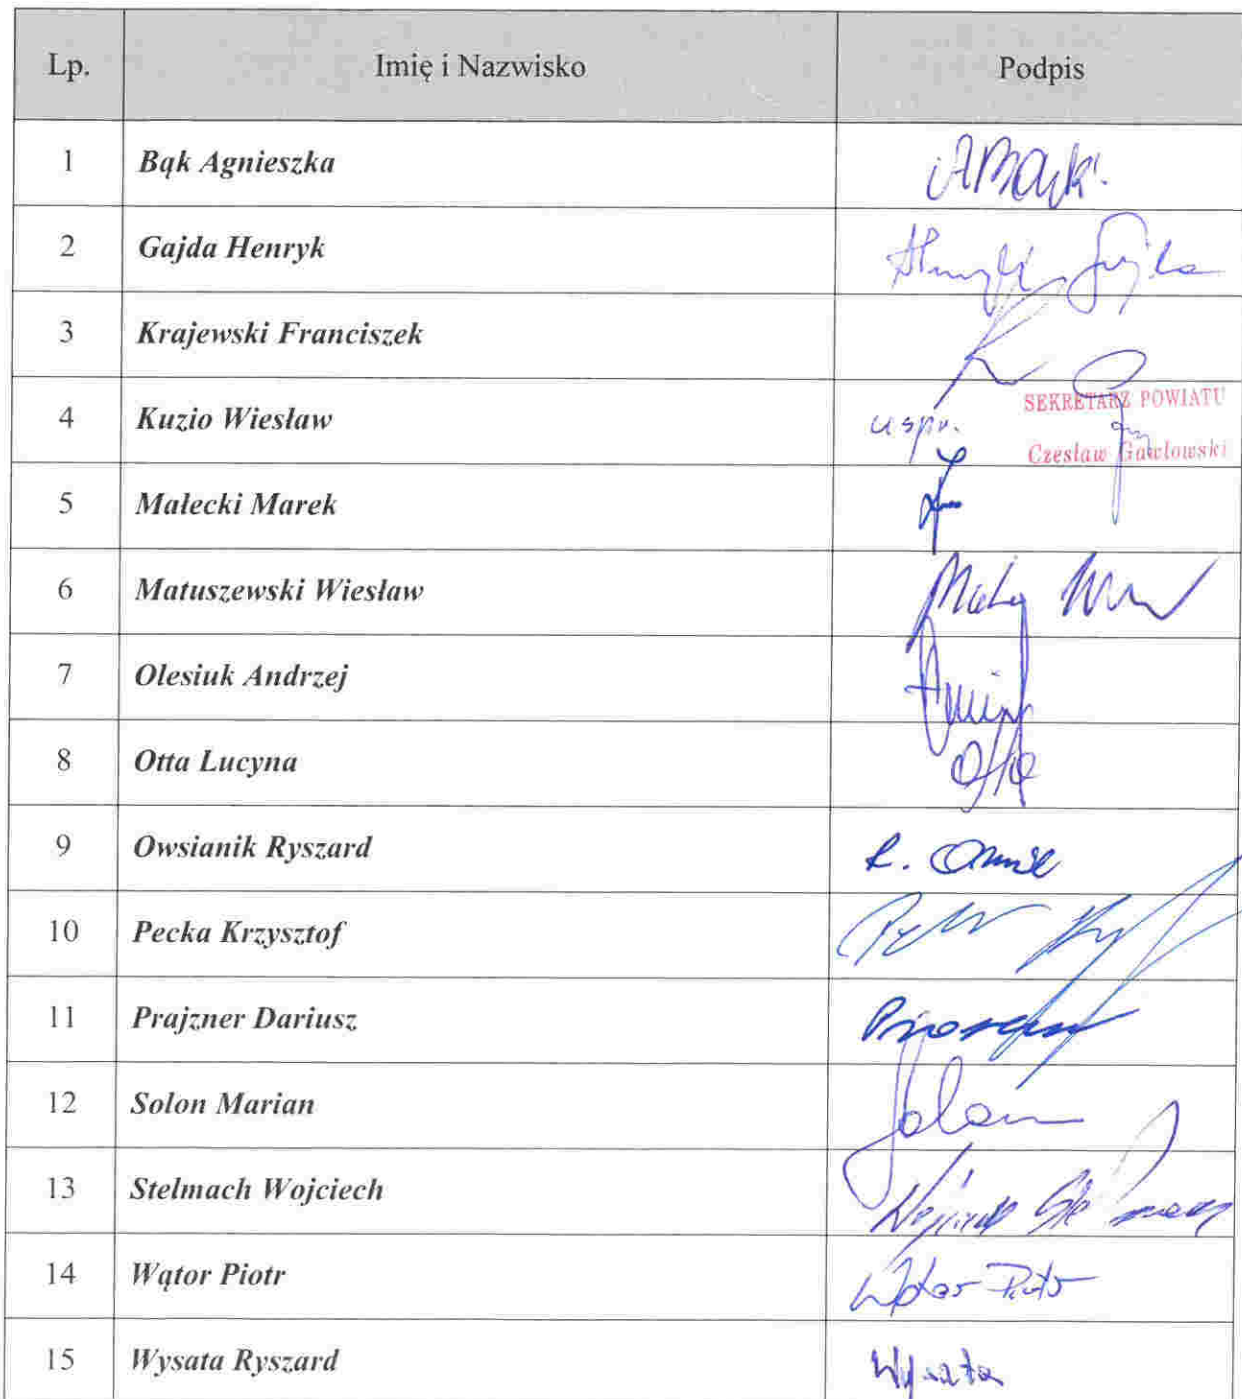 Lp. Imię i Nazwisko Podpis
1 Bąk Agnieszka ABąk
2 Gajda Henryk Henryk Gajda
3 Krajewski Franciszek
4 Kuzio Wiesław uspr. SEKRETARZ POWIATU
Czesław Gawłowski
5 Małecki Marek
6 Matuszewski Wiesław
7 Olesiuk Andrzej
8 Otta Lucyna Otta
9 Owsianik Ryszard
10 Pecka Krzysztof
11 Prajzner Dariusz
12 Solon Marian Solon
13 Stelmach Wojciech Wojciech Stelmach
14 Wątor Piotr Wątor Piotr
15 Wysata Ryszard Wysata